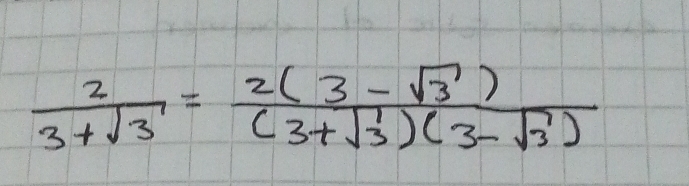 2/(3+√3) = 2(3-√3)/((3+√3)(3-√3))